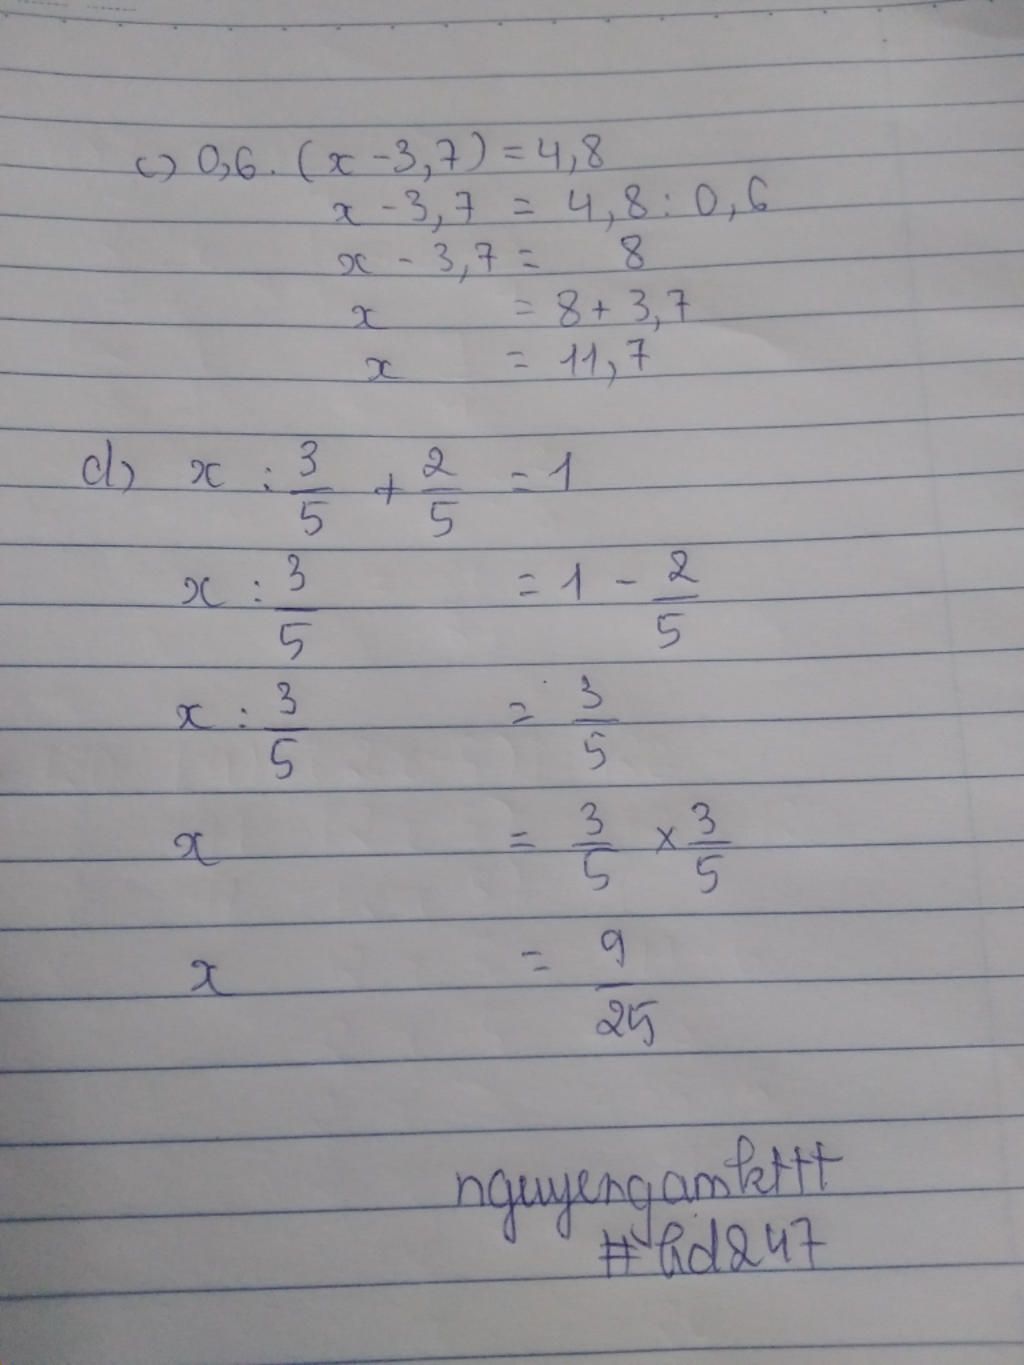 c) 0,6. (x - 3,7) = 4,8
x - 3,7 = 4,8 : 0,6
x - 3,7 = 8
x = 8 + 3,7
x = 11,7
d) x : 3/5 + 2/5 = 1
x : 3/5 = 1 - 2/5
x : 3/5 = 3/5
x = 3/5 × 3/5
x = 9/25
nguyengamkttt
#hd247